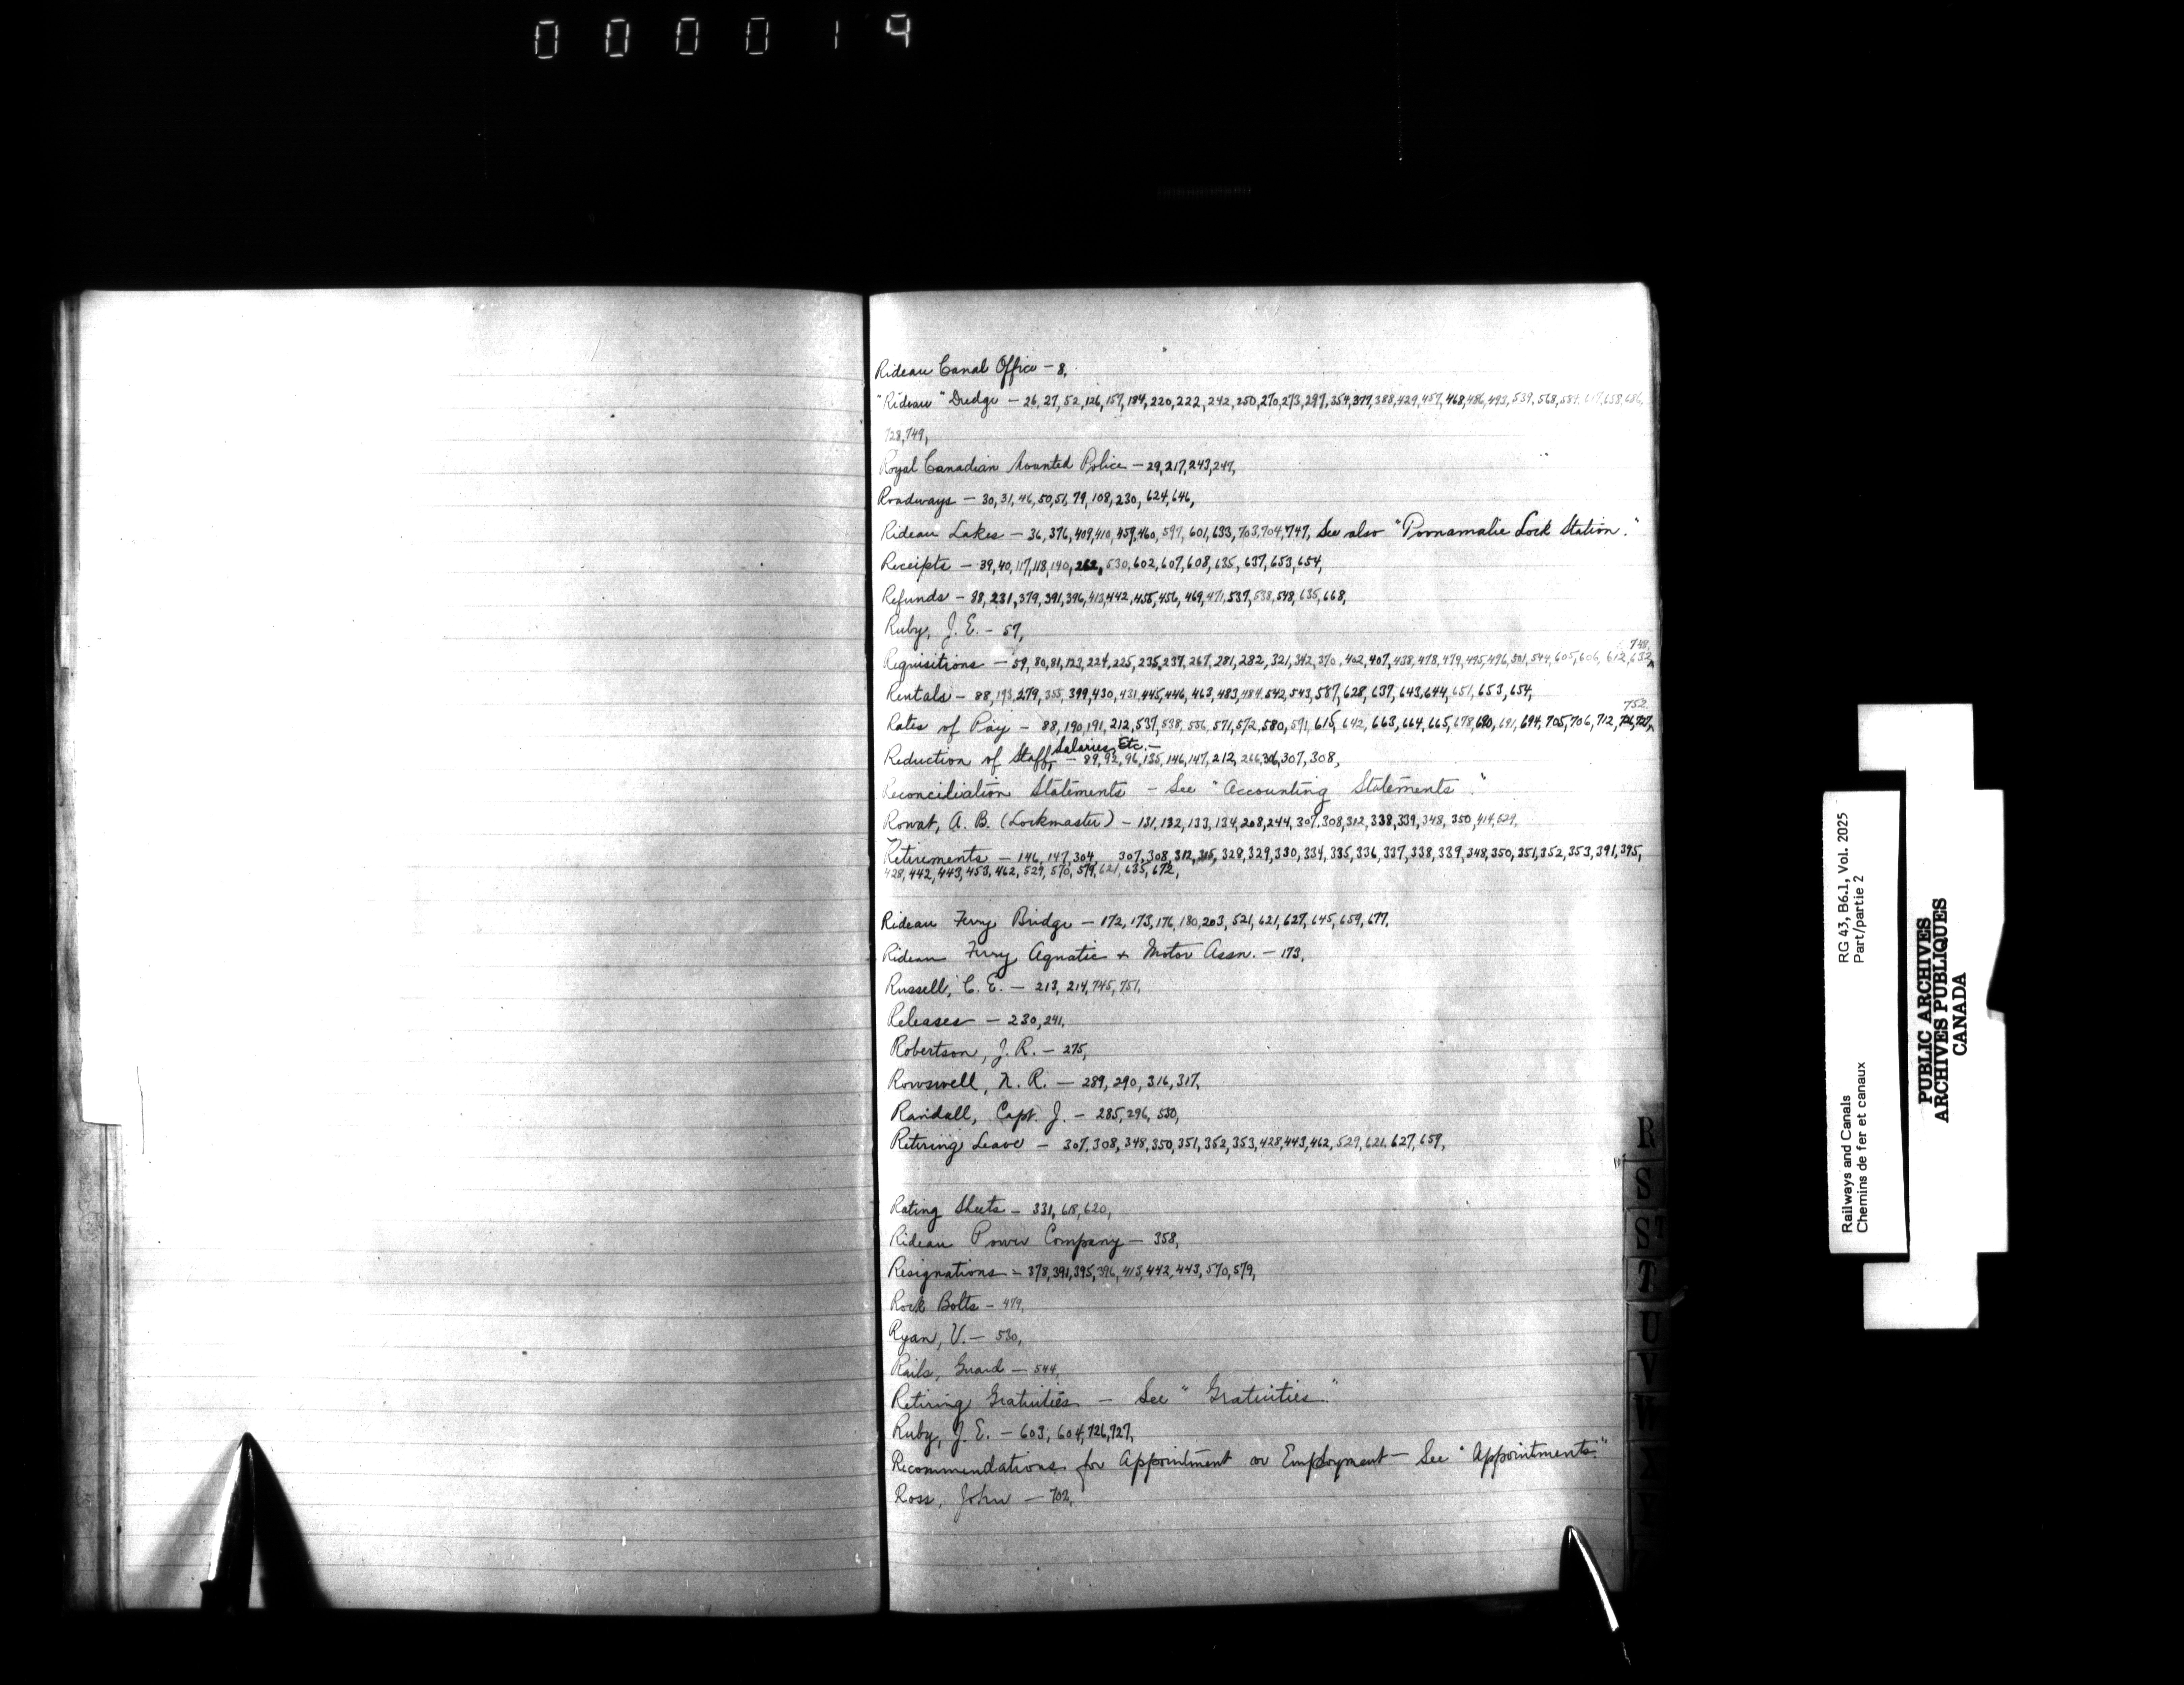 000019
Rideau Canal Office - 8,
"Rideau" Dredge - 26, 27, 52, 126, 157, 184, 220, 222, 242, 250, 270, 273, 297, 354, 377, 388, 429, 457, 468, 486, 493, 539, 568, 658, 686,
728, 749,
Royal Canadian Mounted Police - 29, 217, 243, 247,
Roadways - 30, 31, 46, 50, 51, 79, 108, 230, 624, 646,
Rideau Lakes - 36, 376, 409, 410, 459, 460, 597, 601, 633, 703, 704, 747, See also "Poonamalie Lock Station."
Receipts - 39, 40, 117, 118, 190, 262, 530, 602, 607, 608, 635, 637, 653, 654,
Refunds - 88, 231, 379, 391, 396, 413, 442, 455, 456, 469, 471, 537, 538, 548, 635, 668,
Ruby, J. E. - 57,
748,
Requisitions - 59, 80, 81, 123, 224, 225, 235, 237, 267, 281, 282, 321, 342, 370, 402, 407, 438, 478, 479, 495, 496, 501, 544, 605, 606, 612, 632,
Rentals - 88, 193, 279, 355, 399, 430, 431, 445, 446, 463, 483, 484, 542, 543, 587, 628, 637, 643, 644, 651, 653, 654,
752,
Rates of Pay - 88, 190, 191, 212, 537, 538, 556, 571, 572, 580, 591, 615, 642, 663, 664, 665, 678, 680, 691, 694, 705, 706, 712, 726, 727,
Salaries, Etc. -
Reduction of Staff, - 89, 92, 96, 135, 146, 147, 212, 266, 306, 307, 308,
Reconciliation Statements - See "Accounting Statements."
Rowat, A. B. (Lockmaster) - 131, 132, 133, 134, 208, 244, 307, 308, 312, 338, 339, 348, 350, 414, 529,
Retirements - 146, 147, 304, 307, 308, 312, 315, 328, 329, 330, 334, 335, 336, 337, 338, 339, 348, 350, 351, 352, 353, 391, 395,
428, 442, 443, 453, 462, 529, 570, 579, 621, 635, 672,
Rideau Ferry Bridge - 172, 173, 176, 180, 203, 521, 621, 627, 645, 659, 677,
Rideau Ferry Aquatic & Motor Assn. - 173,
Russell, C. E. - 213, 214, 745, 751,
Releases - 230, 241,
Robertson, J. R. - 275,
Rowswell, N. R. - 289, 290, 316, 317,
Randall, Capt. J. - 285, 296, 530,
Retiring Leave - 307, 308, 348, 350, 351, 352, 353, 428, 443, 462, 529, 621, 627, 659,
Rating Sheets - 331, 618, 620,
Rideau Power Company - 358,
Resignations - 378, 391, 395, 396, 413, 442, 443, 570, 579,
Rock Bolts - 479,
Ryan, V. - 530,
Rails, Guard - 544,
Retiring Gratuities - See "Gratuities."
Ruby, J. E. - 603, 604, 726, 727,
Recommendations for Appointment or Employment - See "Appointments."
Ross, John - 702,
R
S
ST
T
U
V
W
Railways and Canals RG 43, B6.1, Vol. 2025
Chemins de fer et canaux Part/partie 2
PUBLIC ARCHIVES
ARCHIVES PUBLIQUES
CANADA